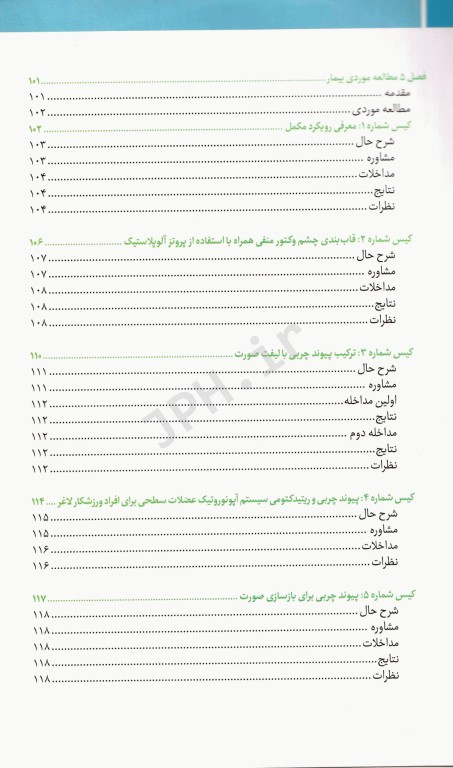 فصل ۵ مطالعه موردی بیمار ........ ۱۰۱
مقدمه ........ ۱۰۱
مطالعه موردی ........ ۱۰۲
کیس شماره ۱: معرفی رویکرد مکمل ........ ۱۰۲
شرح حال ........ ۱۰۳
مشاوره ........ ۱۰۳
مداخلات ........ ۱۰۴
نتایج ........ ۱۰۴
نظرات ........ ۱۰۴
کیس شماره ۲: قاب‌بندی چشم وکتور منفی همراه با استفاده از پروتز آلوپلاستیک ........ ۱۰۶
شرح حال ........ ۱۰۷
مشاوره ........ ۱۰۷
مداخلات ........ ۱۰۸
نتایج ........ ۱۰۸
نظرات ........ ۱۰۸
کیس شماره ۳: ترکیب پیوند چربی با لیفت صورت ........ ۱۱۰
شرح حال ........ ۱۱۱
مشاوره ........ ۱۱۱
اولین مداخله ........ ۱۱۲
نتایج ........ ۱۱۲
مداخله دوم ........ ۱۱۲
نتایج ........ ۱۱۲
نظرات ........ ۱۱۲
کیس شماره ۴: پیوند چربی و ریتیدکتومی سیستم آپونوروتیک عضلات سطحی برای افراد ورزشکار لاغر .... ۱۱۴
شرح حال ........ ۱۱۵
مشاوره ........ ۱۱۵
مداخلات ........ ۱۱۶
نظرات ........ ۱۱۶
کیس شماره ۵: پیوند چربی برای بازسازی صورت ........ ۱۱۷
شرح حال ........ ۱۱۸
مشاوره ........ ۱۱۸
مداخلات ........ ۱۱۸
نتایج ........ ۱۱۸
نظرات ........ ۱۱۸
JPH.ir